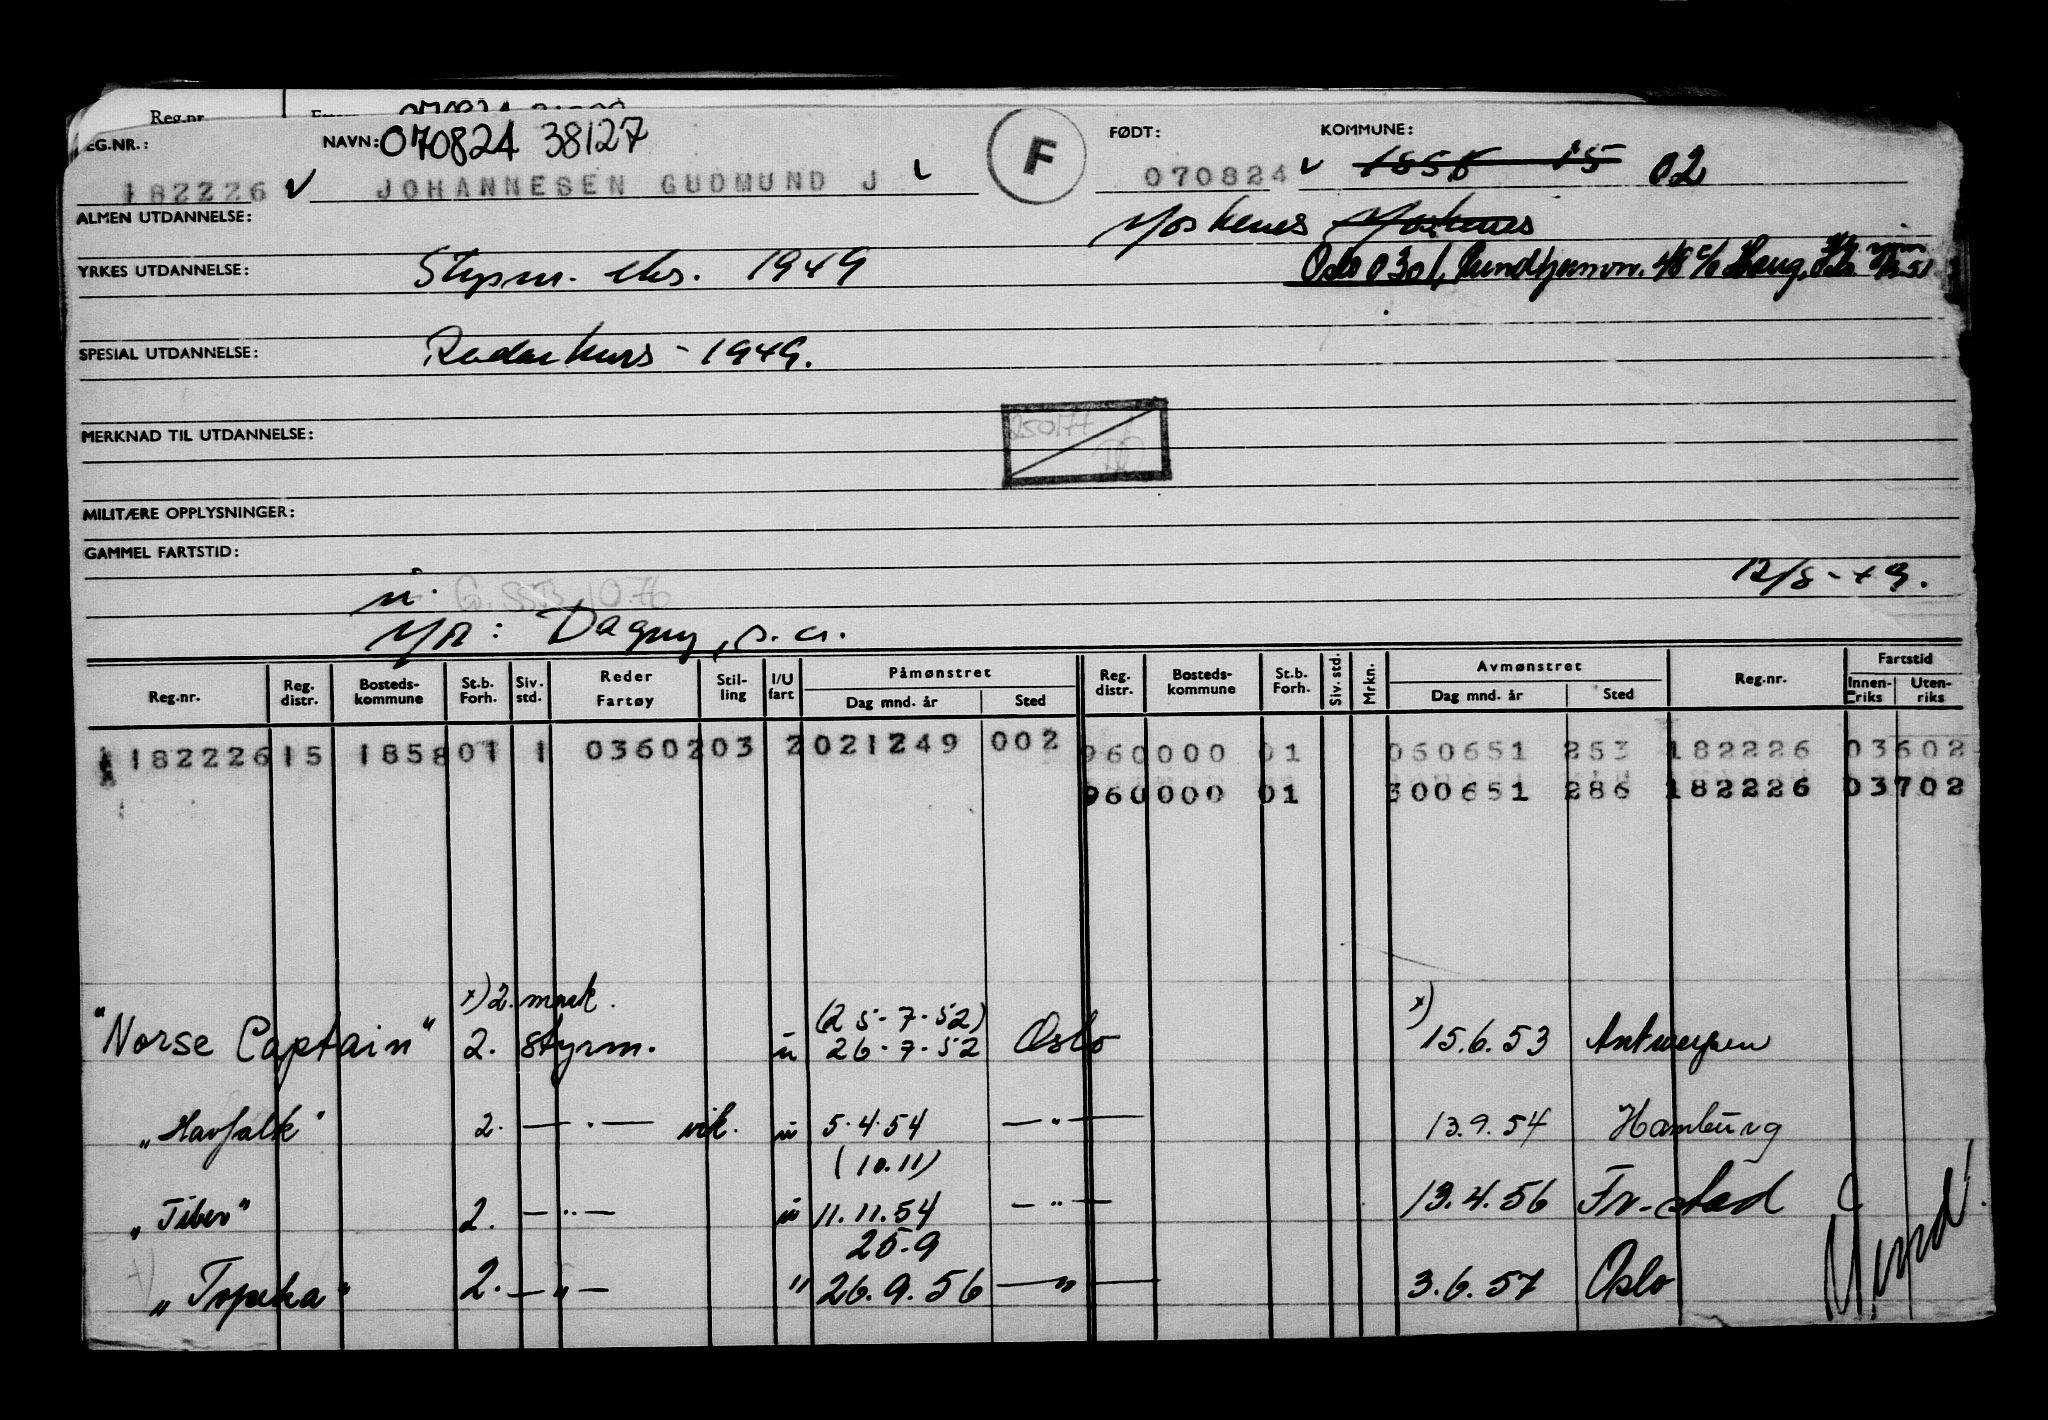 Reg.nr
070824
EG.NR.: NAVN: 070824 38127 F FØDT: KOMMUNE:
182226 v JOHANNESEN GUDMUND J 070824 v 1858 15 02
ALMEN UTDANNELSE: Moskenes Moskenes
YRKES UTDANNELSE: Styrm. eks. 1949 Oslo 0301, Rundtjernvn. 48 c/o Haug, Oslo
SPESIAL UTDANNELSE: Radarkurs - 1949.
250177
MERKNAD TIL UTDANNELSE:
MILITÆRE OPPLYSNINGER:
GAMMEL FARTSTID: 12/8-49.
u. G. SSB 10.76
MR: Dagny, s.a.
Reg.nr. Reg. distr. Bosteds-kommune St.b. Forh. Siv. std. Reder Fartøy Stil-ling I/U fart Påmønstret Dag mnd. år Sted Reg. distr. Bosteds-kommune St.b. Forh. Siv. std. Mrkn. Avmønstret Dag mnd. år Sted Reg.nr. Fartstid Innen-riks Uten-riks
182226 15 1858 01 1 03602 03 2 021249 002 960000 01 050651 253 182226 03602
960000 01 300651 286 182226 03702
x) 2. mask. (25-7-52) x)
"Norse Captain" 2. styrm. u 26-7-52 Oslo 15.6.53 Antwerpen
"Havfalk" 2. — " — vik. u 5.4.54 — " — 13.9.54 Hamburg
(10.11)
"Tiber" 2. — " — u 11.11.54 — " — 19.4.56 Fr.stad
25.9
"Topeka" 2. — " — " 26.9.56 — " — 3.6.57 Oslo
Vend!